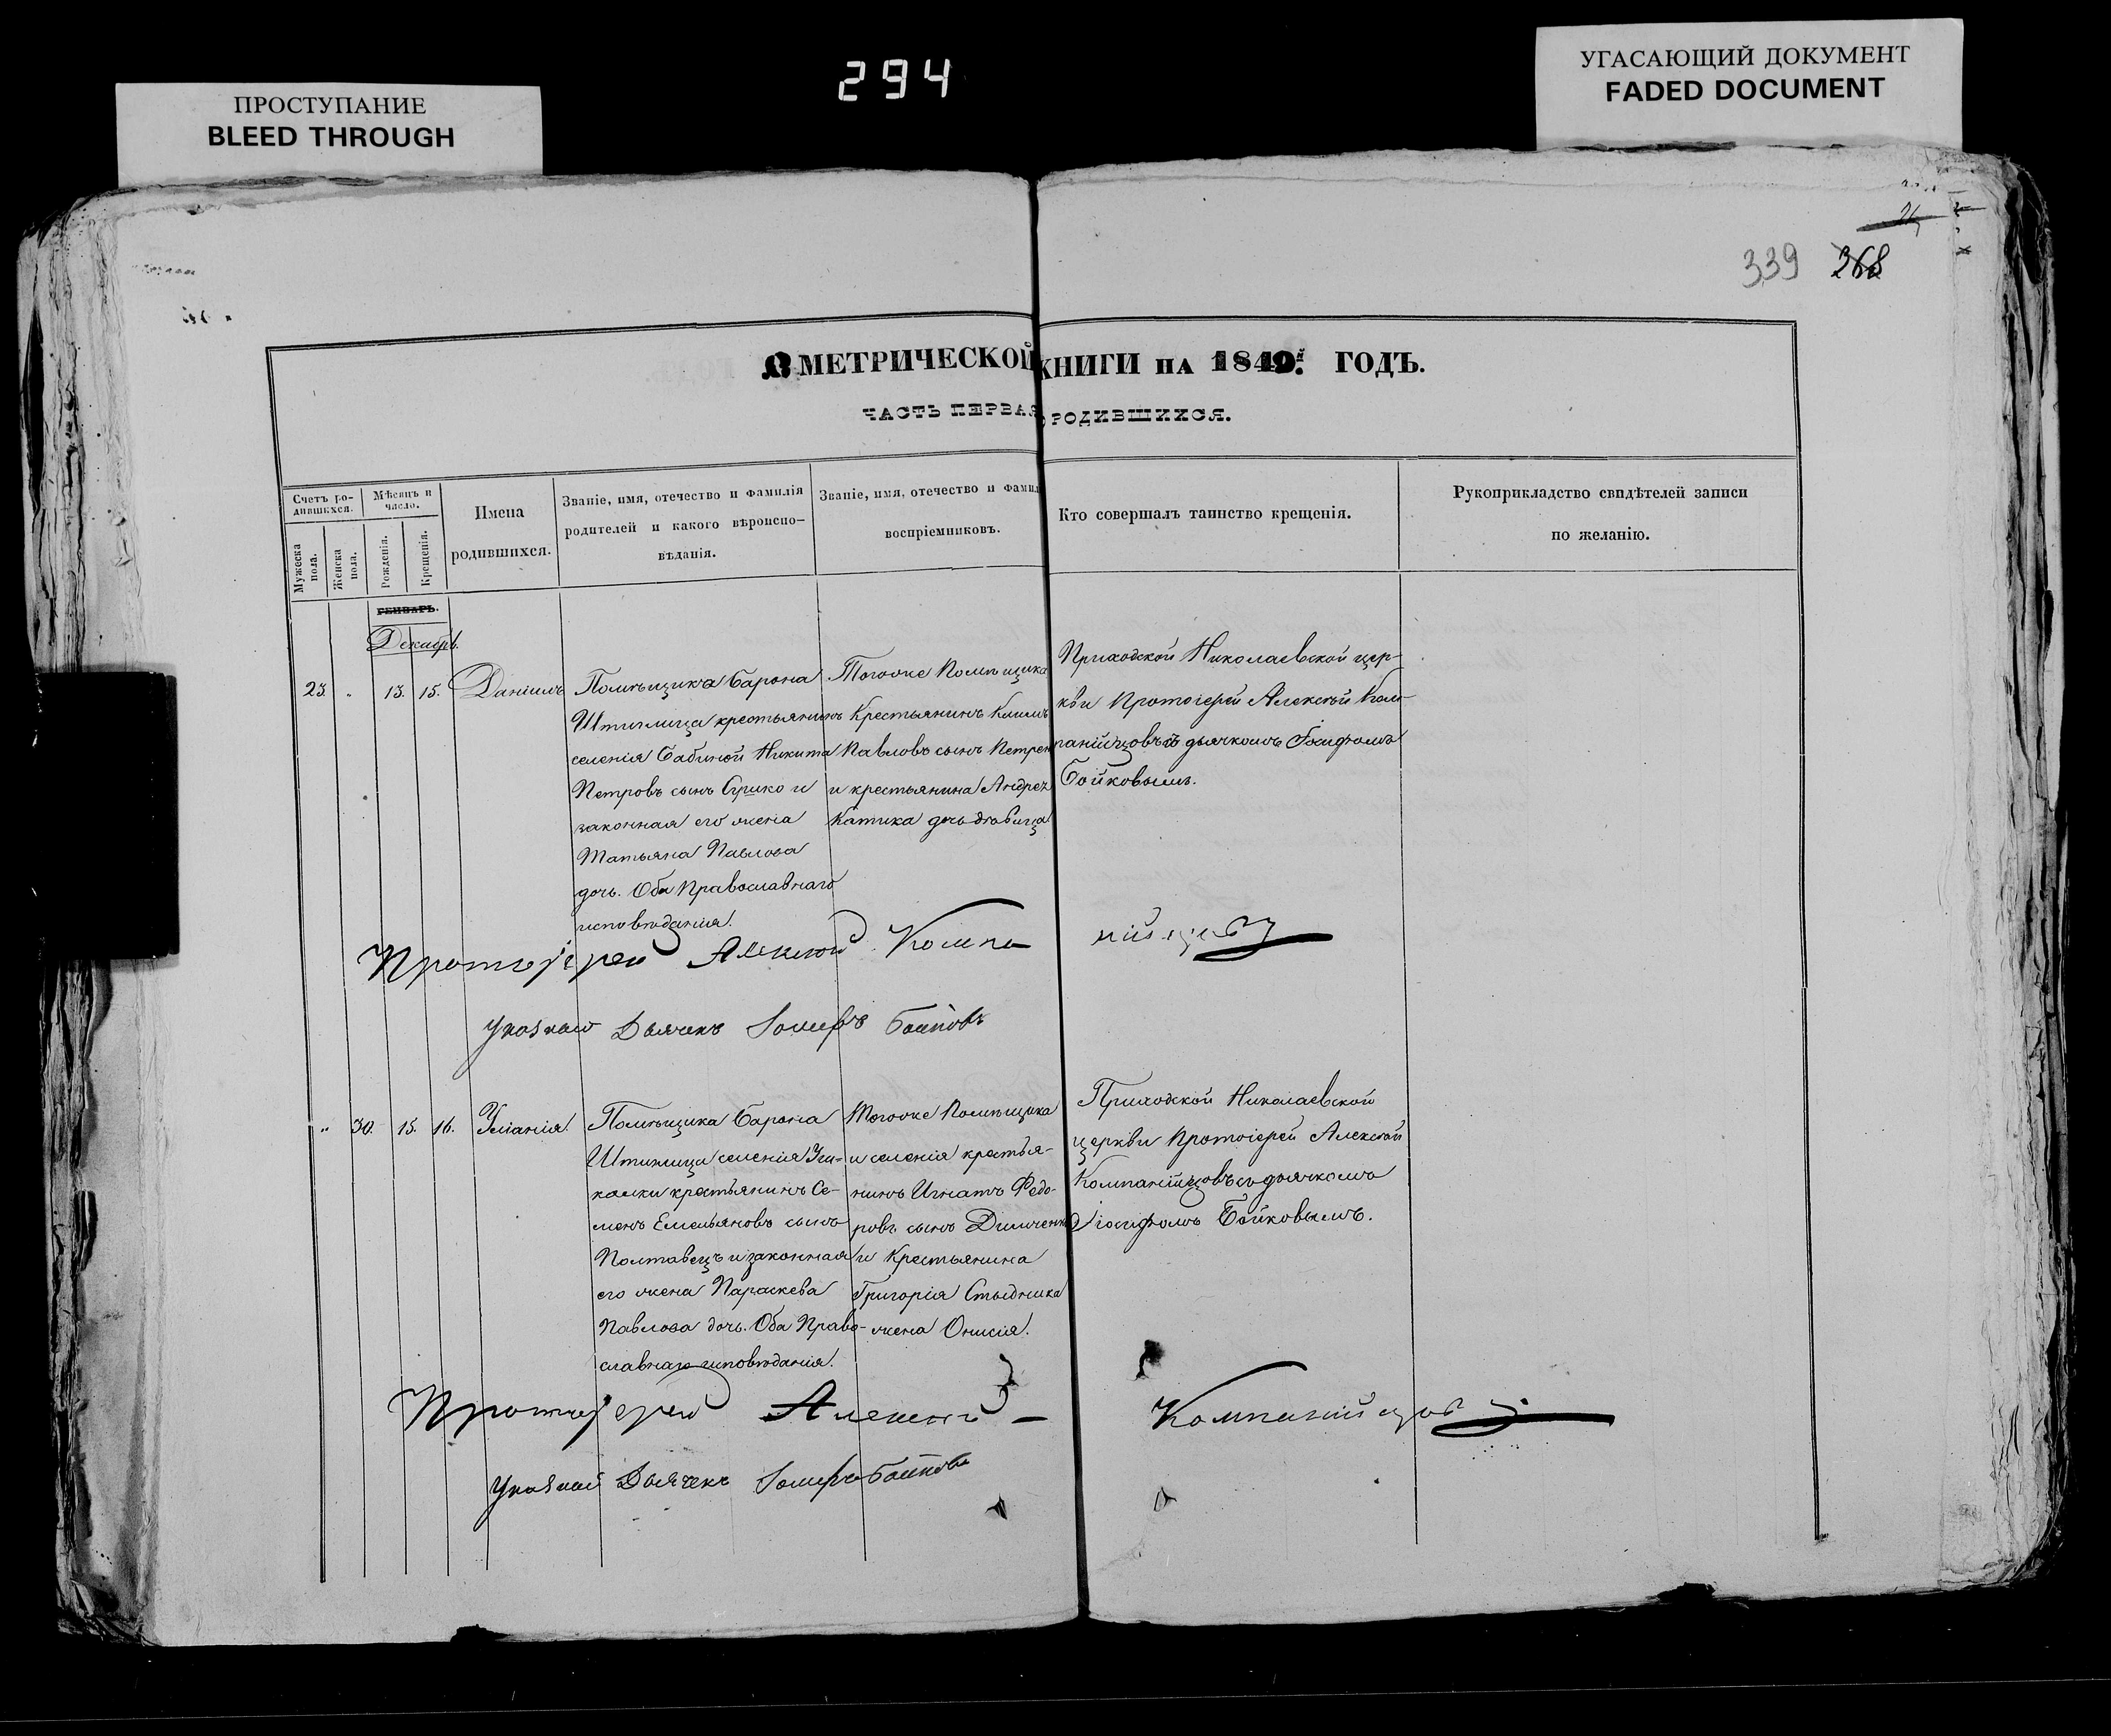 294
ПРОСТУПАНИЕ
BLEED THROUGH
УГАСАЮЩИЙ ДОКУМЕНТ
FADED DOCUMENT
339 368
МЕТРИЧЕСКОЙ КНИГИ НА 1849й ГОДЪ.
ЧАСТЬ ПЕРВАЯ, РОДИВШИХСЯ.
Счетъ ро-
дившихся.
Мужеска
пола.
Женска
пола.
Мѣсяцъ и
число.
Рожденія.
Крещенія.
Имена
родившихся.
Званіе, имя, отечество и фамилія
родителей и какого вѣроиспо-
вѣданія.
Званіе, имя, отечество и фамил
воспріемниковъ.
Кто совершалъ таинство крещенія.
Рукоприкладство свидѣтелей записи
по желанію.
ГЕНВАРЬ.
Декабрь.
23. " 13. 15. Даніилъ
Помѣщика Барона
Штиглица крестьянинъ
селенія Бабиной Никита
Петровъ сынъ и
законная его жена
Татьяна Павлова
дочь. Оба Православнаго
исповѣданія.
Тогоже Помѣщика
Крестьянинъ Климъ
Павловъ сынъ Петрен
и крестьянина Андрея
Катика дочь дѣвица
Приходской Николаевской цер-
кви Протоіерей Алексѣй Ком-
панійцовъ съ дьячкомъ Іосифомъ
Бойковымъ.
Протоіерей Алексѣй Компанійцовъ
Указной Дьячекъ Іосифъ Бойковъ
" 30. 15. 16. Уліанія.
Помѣщика Барона
Штиглица селенія
крестьянинъ Се-
менъ Емельяновъ сынъ
Полтавецъ и законная
его жена Параскева
Павлова дочь. Оба Право-
славнаго исповѣданія.
Тогоже Помѣщика
и селенія крестья-
нинъ Игнатъ Федо-
ровъ сынъ Димченко
и Крестьянина
Григорія Стыдника
жена Онисія.
Приходской Николаевской
церкви Протоіерей Алексѣй
Компанійцовъ съ дьячкомъ
Іосифомъ Бойковымъ.
Протоіерей Алексѣй Компанійцовъ
Указной Дьячекъ Іосифъ Бойковъ